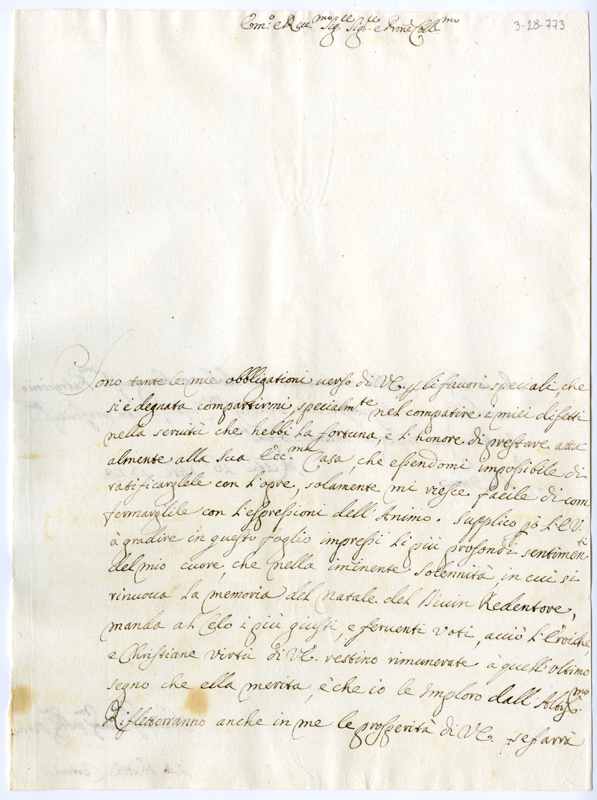 3-28-773
Em.o e Rev.mo Sig.r Sig.re e Pron Coll.mo
Sono tante le mie obbligationi verso di VE. p li favori speciali, che
si è degnata compartirmi, specialm.te nel compatire i miei difetti
nella servitù che hebbi la fortuna, e l'honore di prestare attu
almente alla sua Ecc.ma Casa, che essendomi impossibile di
ratificarglele con l'opre, solamente mi riesce facile di con
fermarglile con l'espressioni dell'Animo. Supplico pò l'E.V.
à gradire in questo foglio impressi li più profondi sentimen ti
del mio cuore, che nella iminente solennità, in cui si
rinuova la memoria del Natale del Divin Redentore,
manda al Celo i più giusti, e ferventi voti, acciò l'Eroiche
e Christiane virtù di VE. restino rimunerate à quell'ultimo
segno che ella merita, e che io le imploro dall'Altiss.mo
Rifletterranno anche in me le prosperità di VE. se farrà